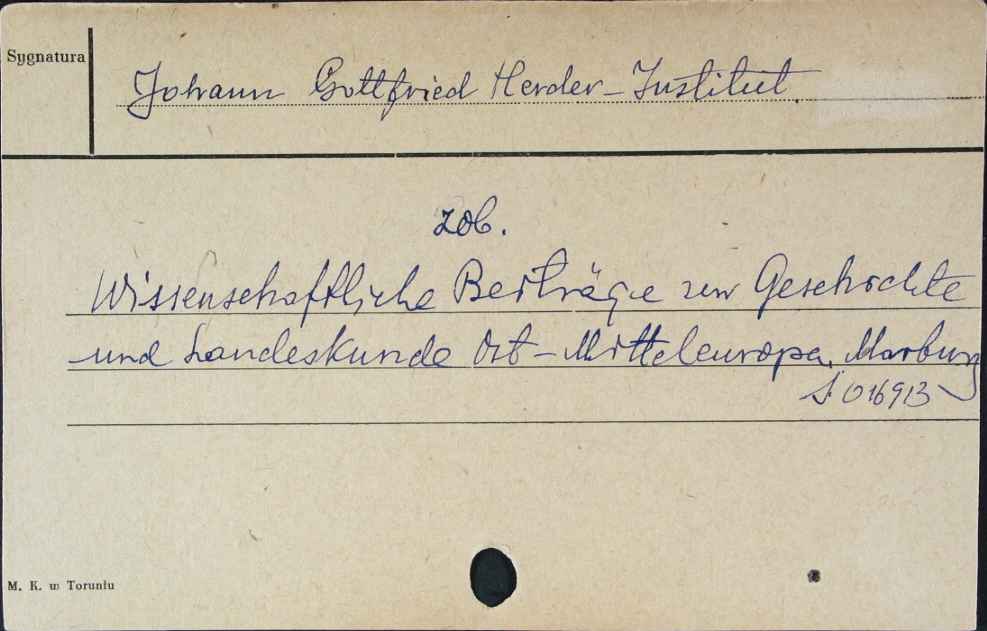 Sygnatura
Johann Gottfried Herder-Institut.
zob.
Wissenschaftliche Beiträge zur Geschichte
und Landeskunde Ost-Mitteleuropa, Marburg
S. 016913
M. K. w Toruniu